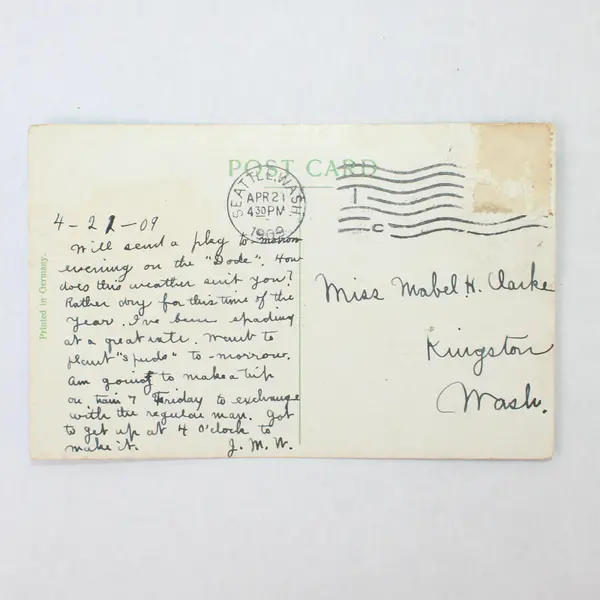 POST CARD
SEATTLE, WASH.
APR 21
4 30 PM
1909
1
C
Printed in Germany.
4-21-09
Will send a pkg to-morrow
evening on the "Dode". How
does this weather suit you?
Rather dry for this time of the
year. I've been spading
at a great rate. Want to
plant "spuds" to-morrow.
Am going to make a trip
on train 7 Friday to exchange
with the regular man. Got
to get up at 4 O'clock to
make it. J. M. W.
Miss Mabel H. Clarke
Kingston
Wash.